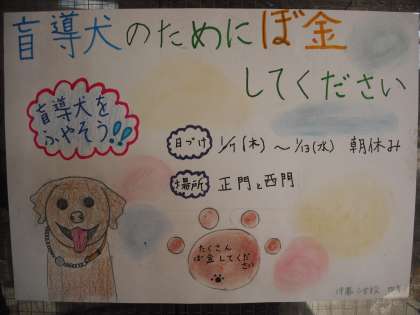 盲導犬のためにぼ金
してください
盲導犬を
ふやそう!!
日づけ 1/7(木)～1/13(水) 朝休み
場所 正門と西門
たくさん
ぼ金してくだ
さい